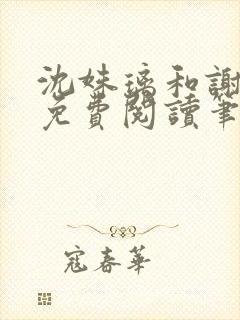 沈妹璃和謝
免費閱讀筆
寇春華